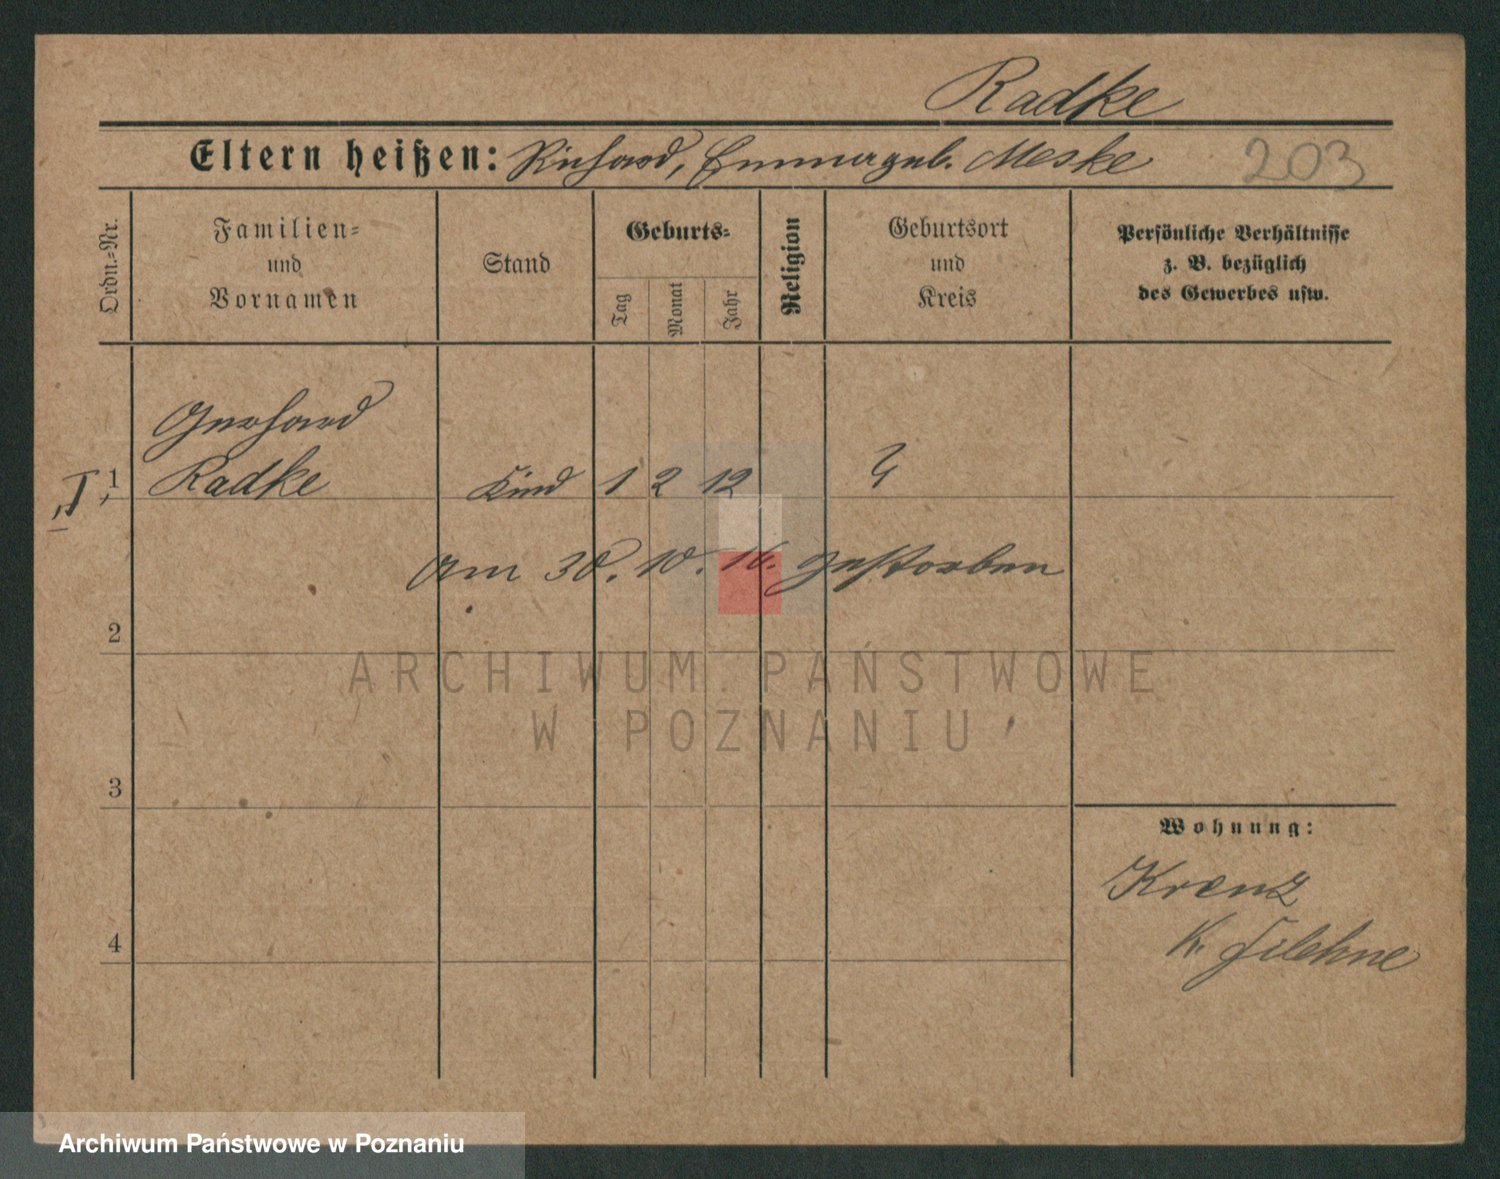 Radke
Eltern heißen: Richard, Emma geb. Meske
203
Ordn.-Nr.
Familien-
und
Vornamen
Stand
Geburts-
Tag
Monat
Jahr
Religion
Geburtsort
und
Kreis
Persönliche Verhältnisse
z. B. bezüglich
des Gewerbes usw.
Gerhard
I, 1 Radke Kind 1 2 12 ?
am 30. 10. 16. gestorben
2
ARCHIWUM PAŃSTWOWE
W POZNANIU
3
Wohnung:
Krenz
K. Filehne
4
Archiwum Państwowe w Poznaniu